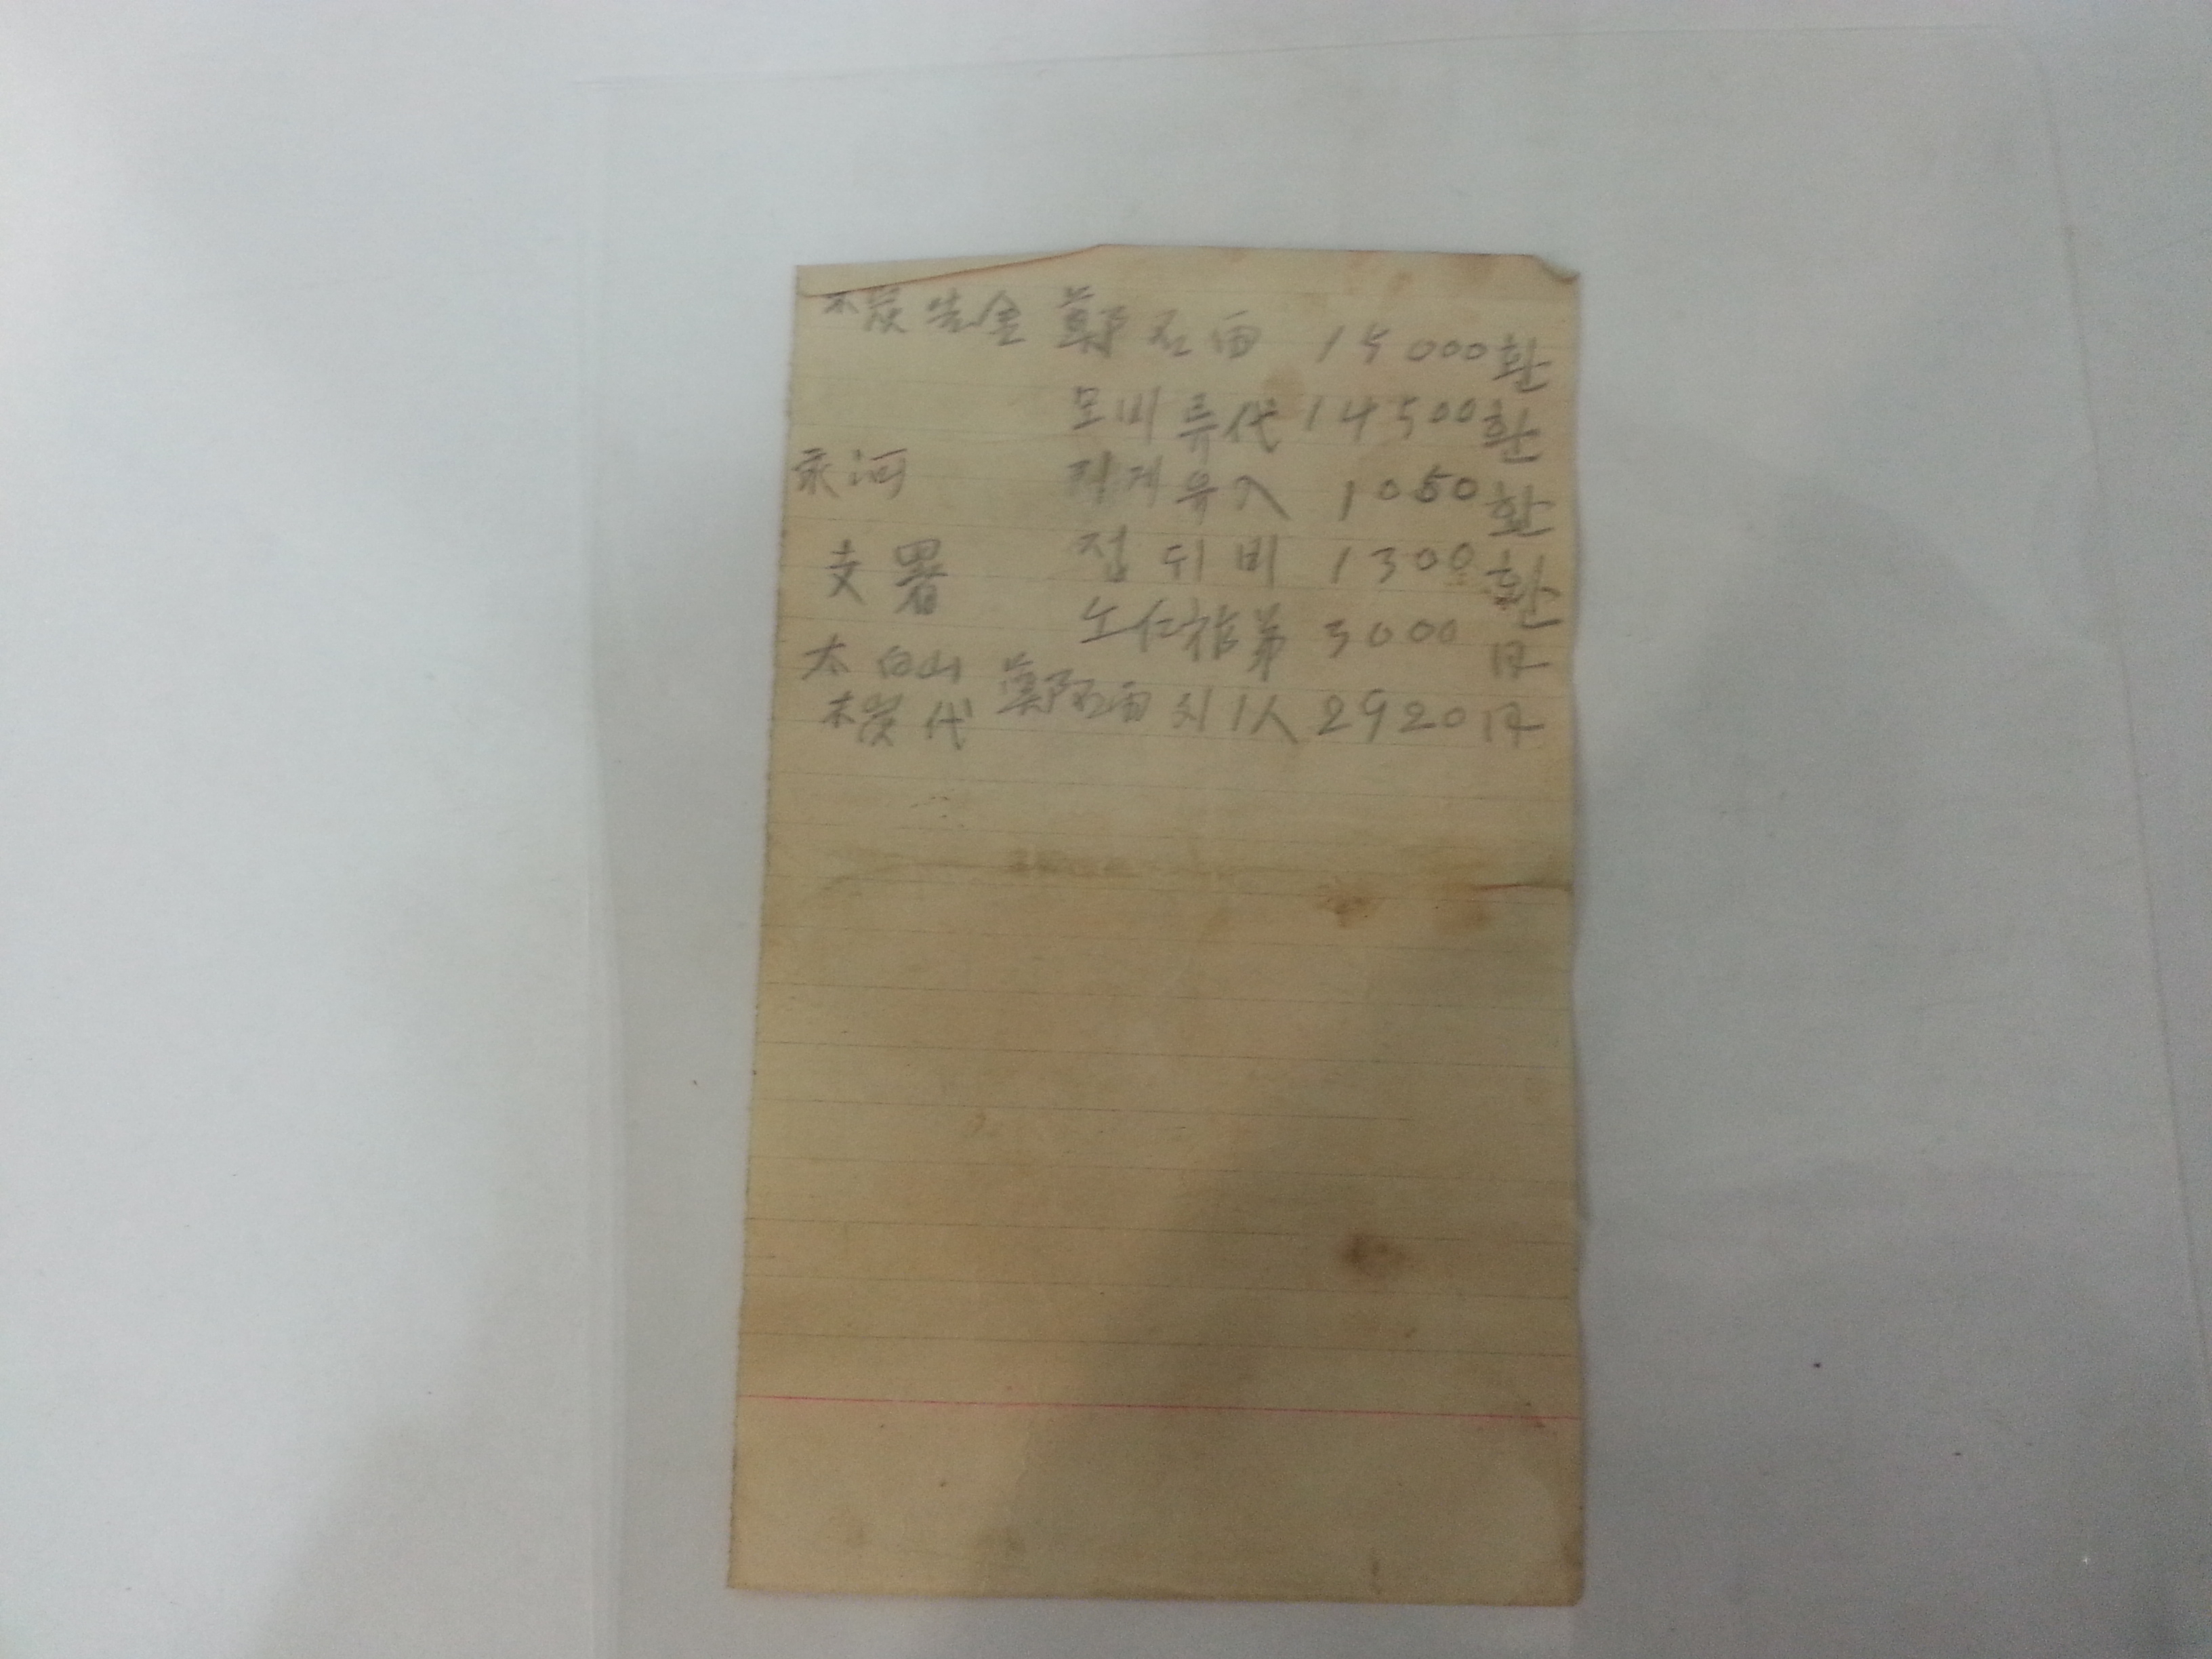 木炭先金 鄭石雨 15000환
모비류代 14500환
永河 유入 1050환
접대비 1300환
支署
노仁 弟 3000円
太白山
木炭代 鄭石雨 외1人 2920円